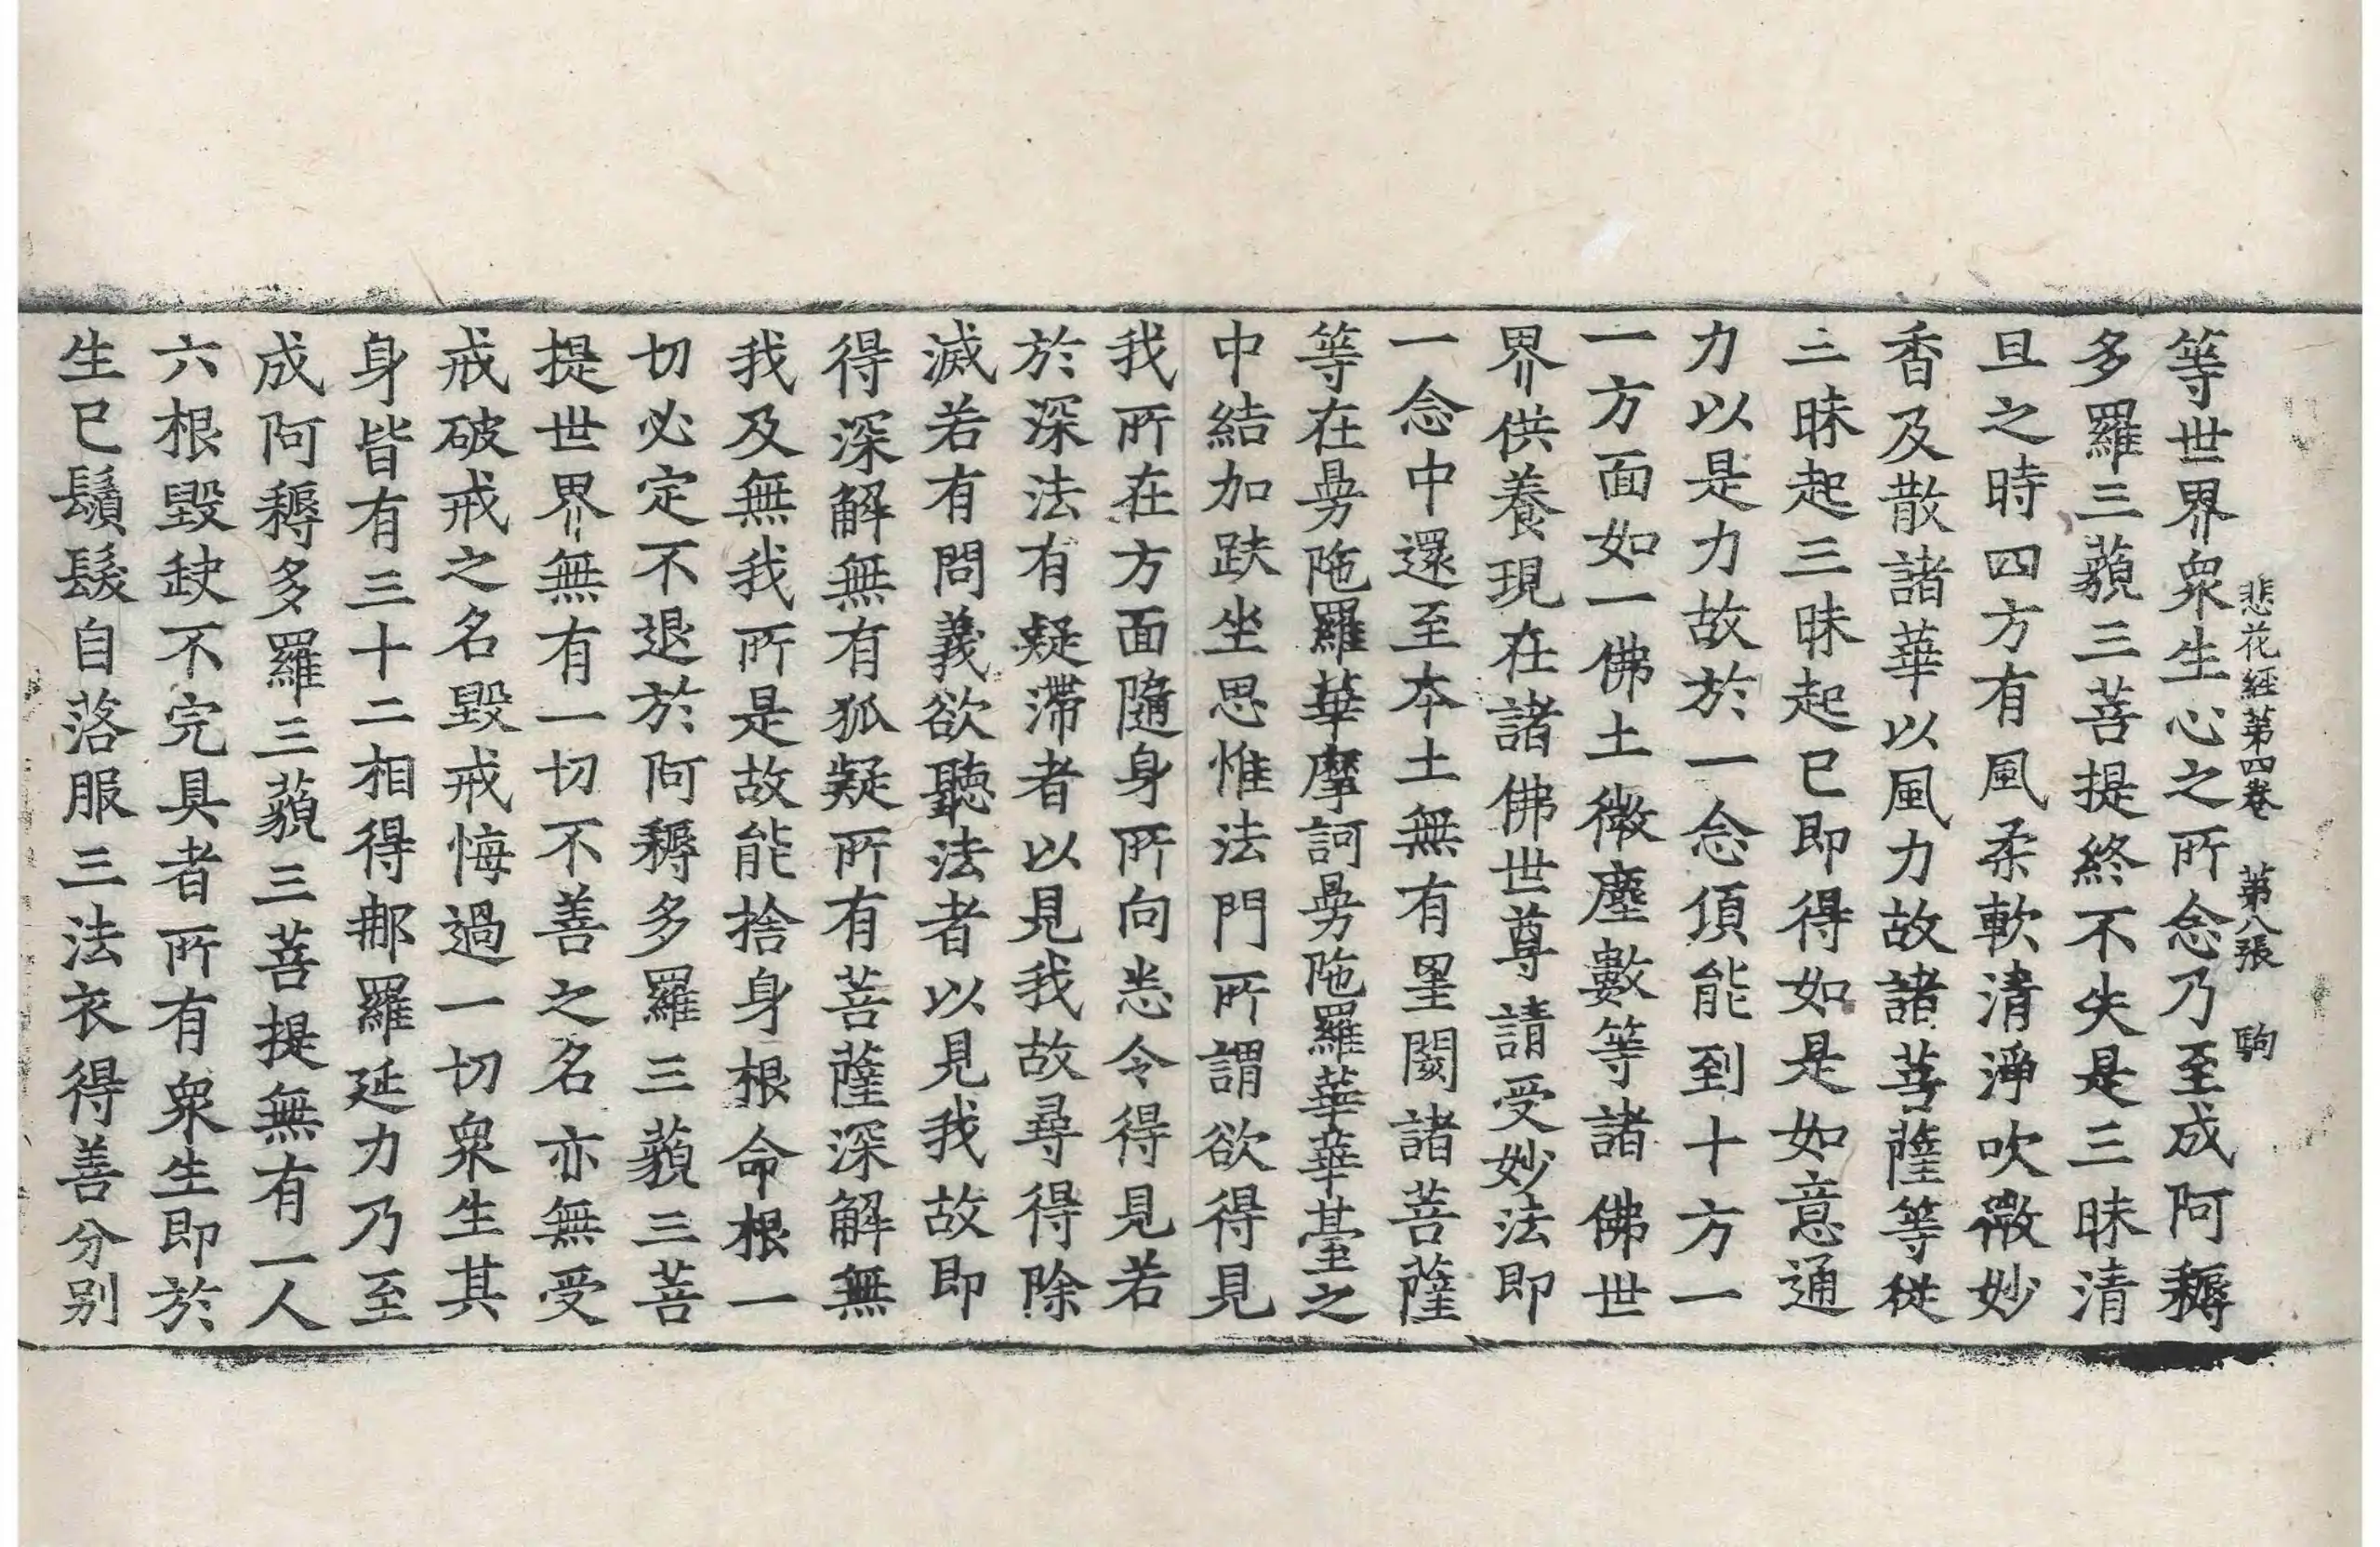 悲花經第四卷 第八張 駒
等世界衆生心之所念乃至成阿耨
多羅三藐三菩提終不失是三昧清
旦之時四方有風柔軟清淨吹微妙
香及散諸華以風力故諸菩薩等從
三昧起三昧起已即得如是如意通
力以是力故於一念頃能到十方一
一方面如一佛土微塵數等諸佛世
界供養現在諸佛世尊請受妙法即
一念中還至本土無有罣閡諸菩薩
等在曼陁羅華摩訶曼陁羅華華臺之
中結加趺坐思惟法門所謂欲得見
我所在方面隨身所向悉令得見若
於深法有疑滯者以見我故尋得除
滅若有問義欲聽法者以見我故即
得深解無有狐疑所有菩薩深解無
我及無我所是故能捨身根命根一
切必定不退於阿耨多羅三藐三菩
提世界無有一切不善之名亦無受
戒破戒之名毀戒悔過一切衆生其
身皆有三十二相得那羅延力乃至
成阿耨多羅三藐三菩提無有一人
六根毀缺不完具者所有衆生即於
生已鬚髮自落服三法衣得善分別